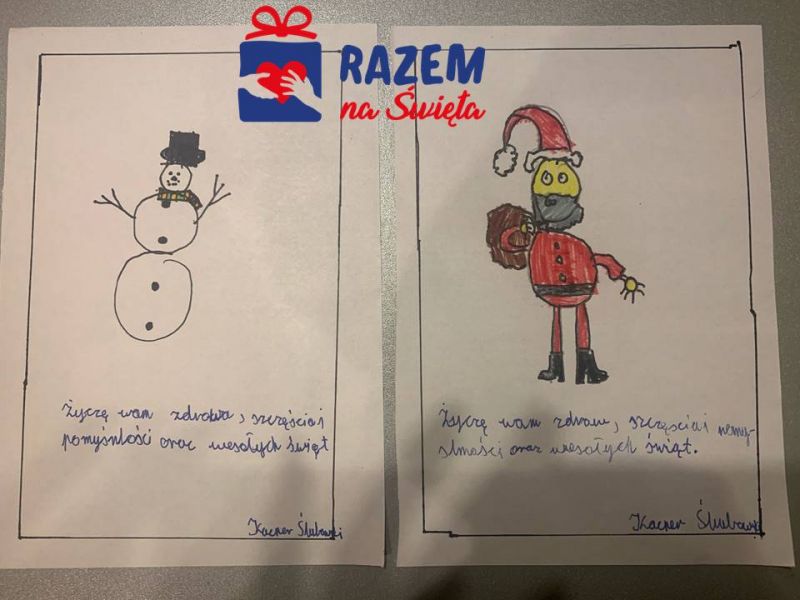 RAZEM
na Święta
Życzę wam zdrowia, szczęścia i
pomyślności oraz wesołych świąt
Kacper
Życzę wam zdrowia, szczęścia i pomy-
ślności oraz wesołych świąt.
Kacper